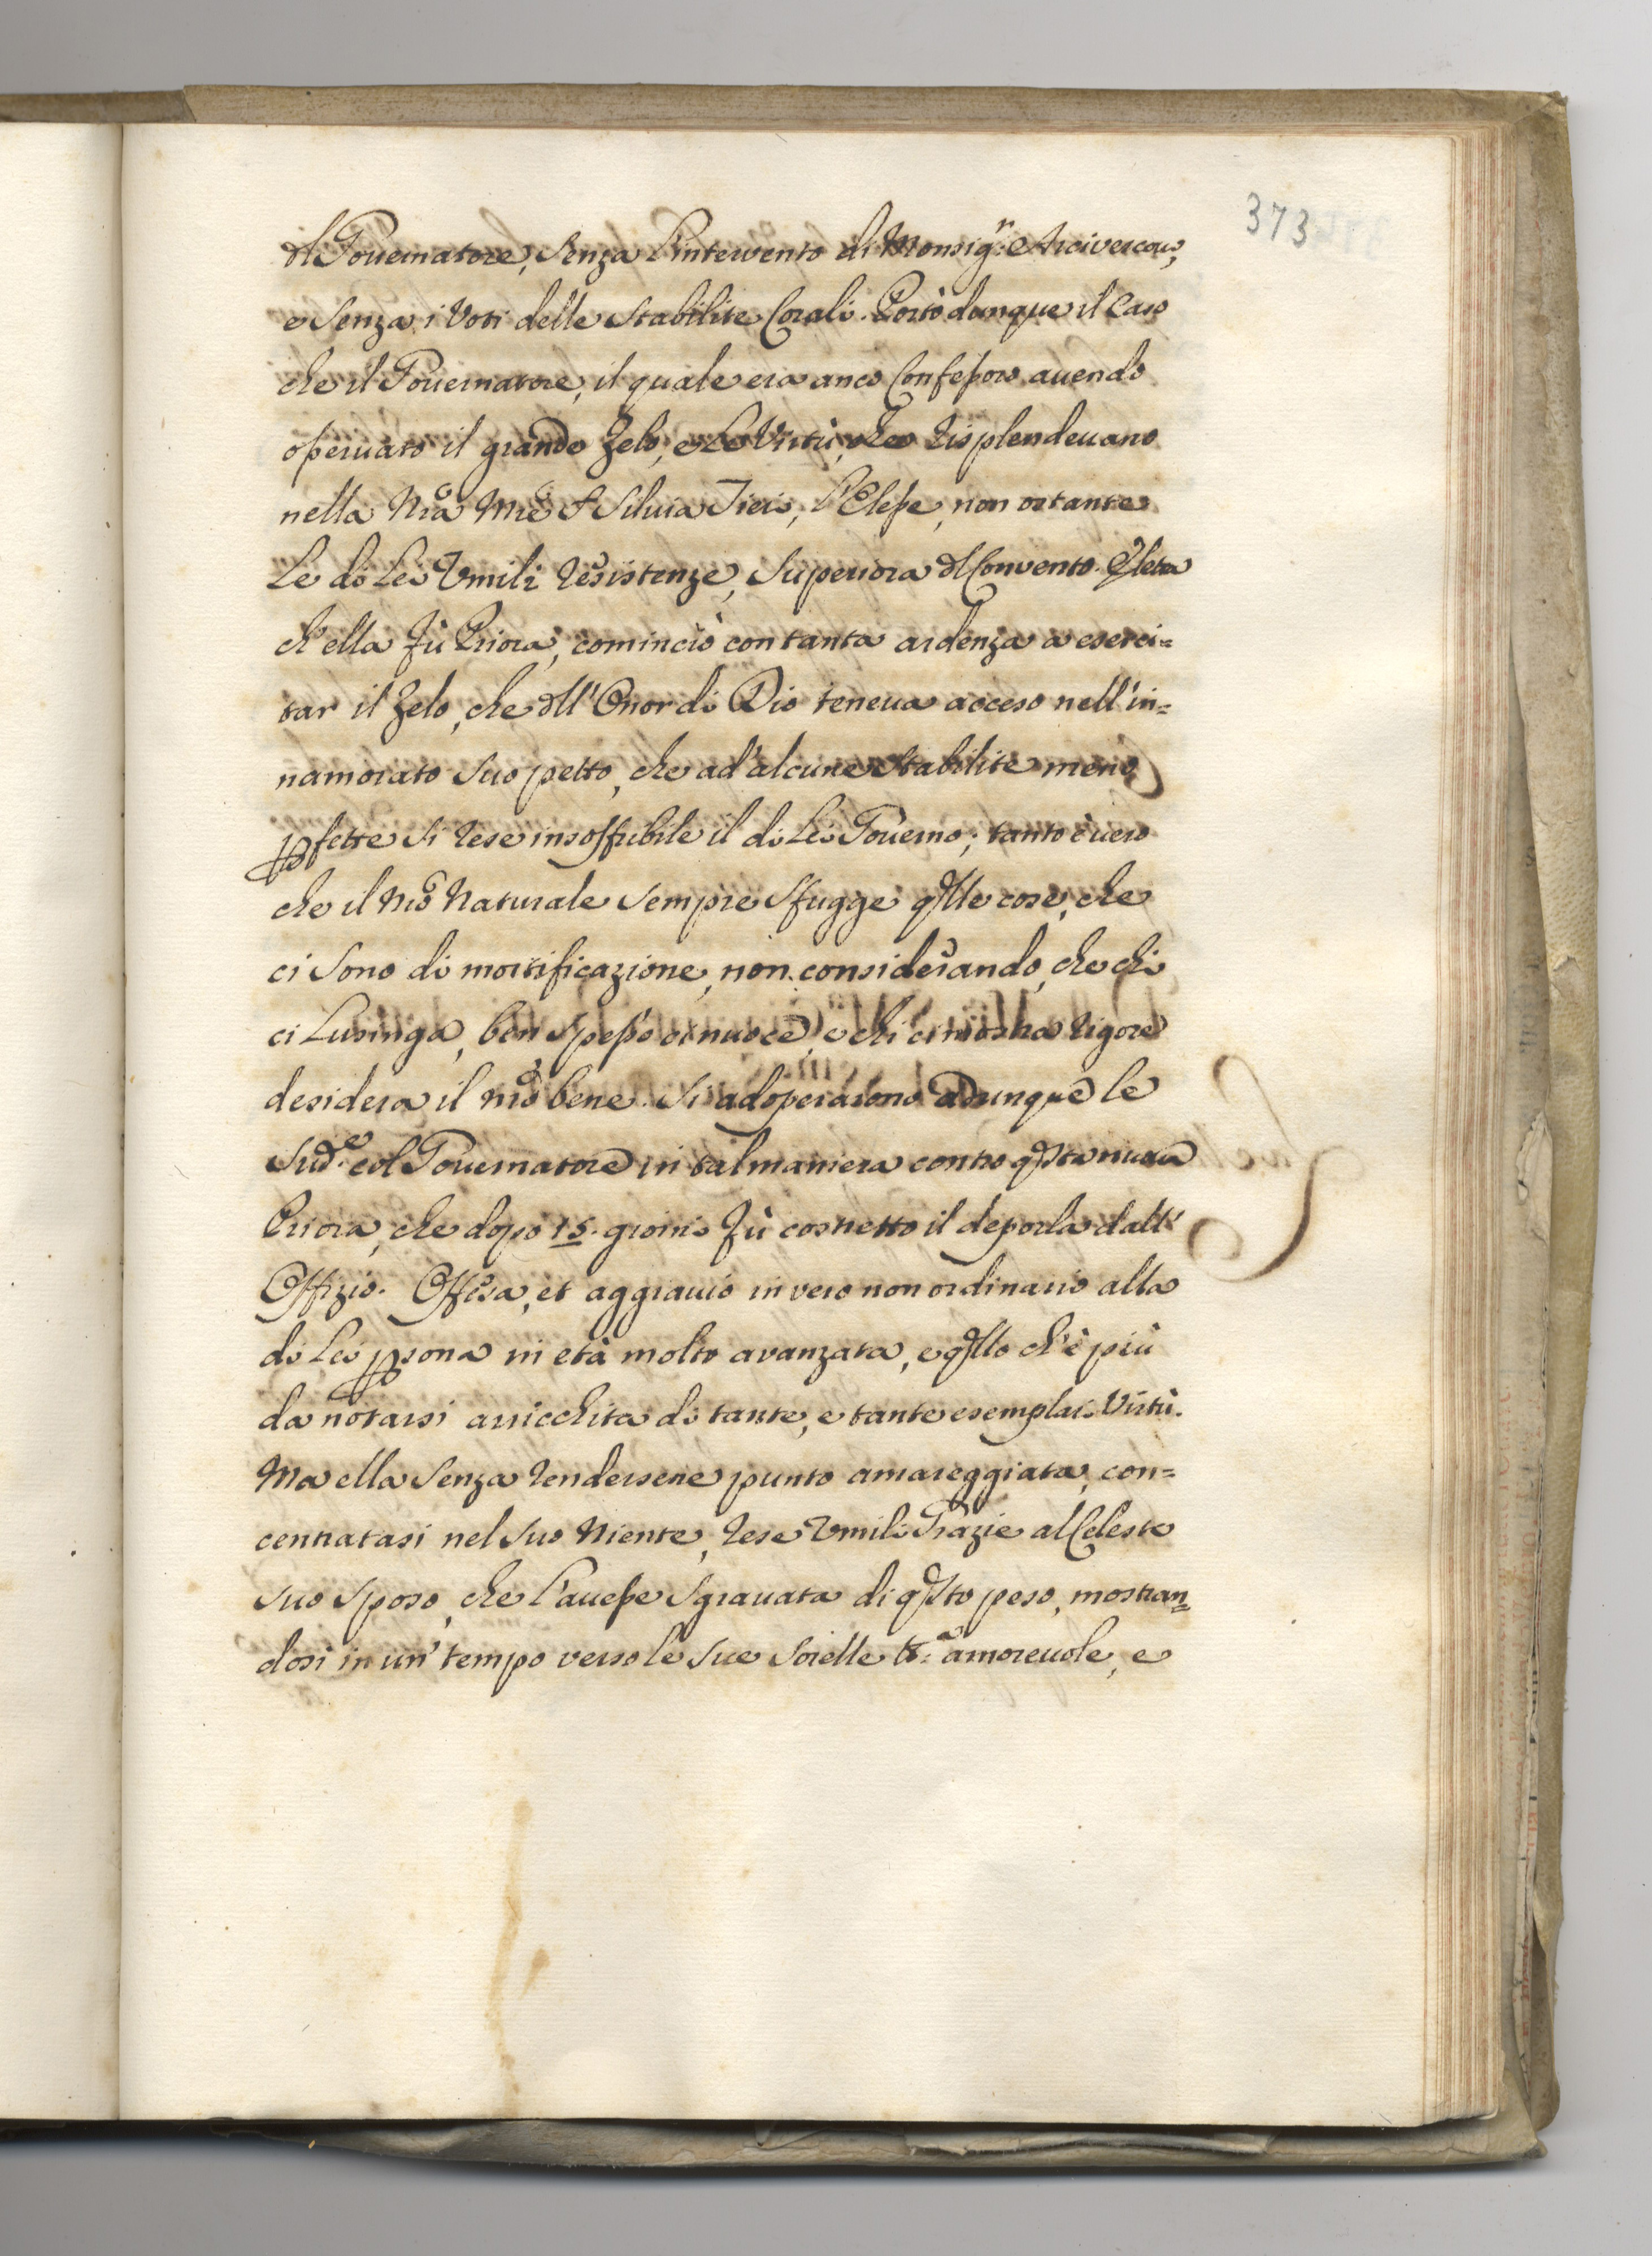 373
dl Gouernatore, senza l'interuento di Monsig.r Arcivescouo,
e senza i Voti delle stabilite Corali. Portò dunque il Caso
che il Gouernatore, il quale era anco Confessore auendo
osseruato il grande Zelo, e le Virtù, che risplendeuano
nella Nra Mre S Siluia, l'Elesse, non ostante
le di Lei Vmili resistenze, Superiora dl Convento. Eletta
ch'ella fù Priora, cominciò con tanta ardenza a eserci=
tar il Zelo, che dll'Onor di Dio teneua acceso nell'in=
namorato suo petto, che ad'alcune stabilite meno
pfette si rese insoffribile il di Lei Gouerno; tanto è uero
che il nro Naturale sempre sfugge qlle cose, che
ci sono di mortificazione, non considerando, che chi
ci Lusinga, ben spesso ci nuoce, e chi ci mostra rigore
desidera il nro bene. Si adoperarono adunque le
Sud.e col Gouernatore in tal maniera contro qsta nuoua
Priora, che dopo 15. giorni fù costretto il deporla dall'
Offizio. Offesa, et aggrauio in vero non ordinario alla
di Lei psona in età molto avanzata, e qllo ch'è più
da notarsi arricchita di tante, e tante esemplari Virtù.
Ma ella senza rendersene punto amareggiata, con=
centratasi nel suo Niente, rese Vmili Grazie al Celeste
suo Sposo, che l'auesse sgrauata di qsto peso, mostran=
dosi in un' tempo verso le sue sorelle amoreuole, e